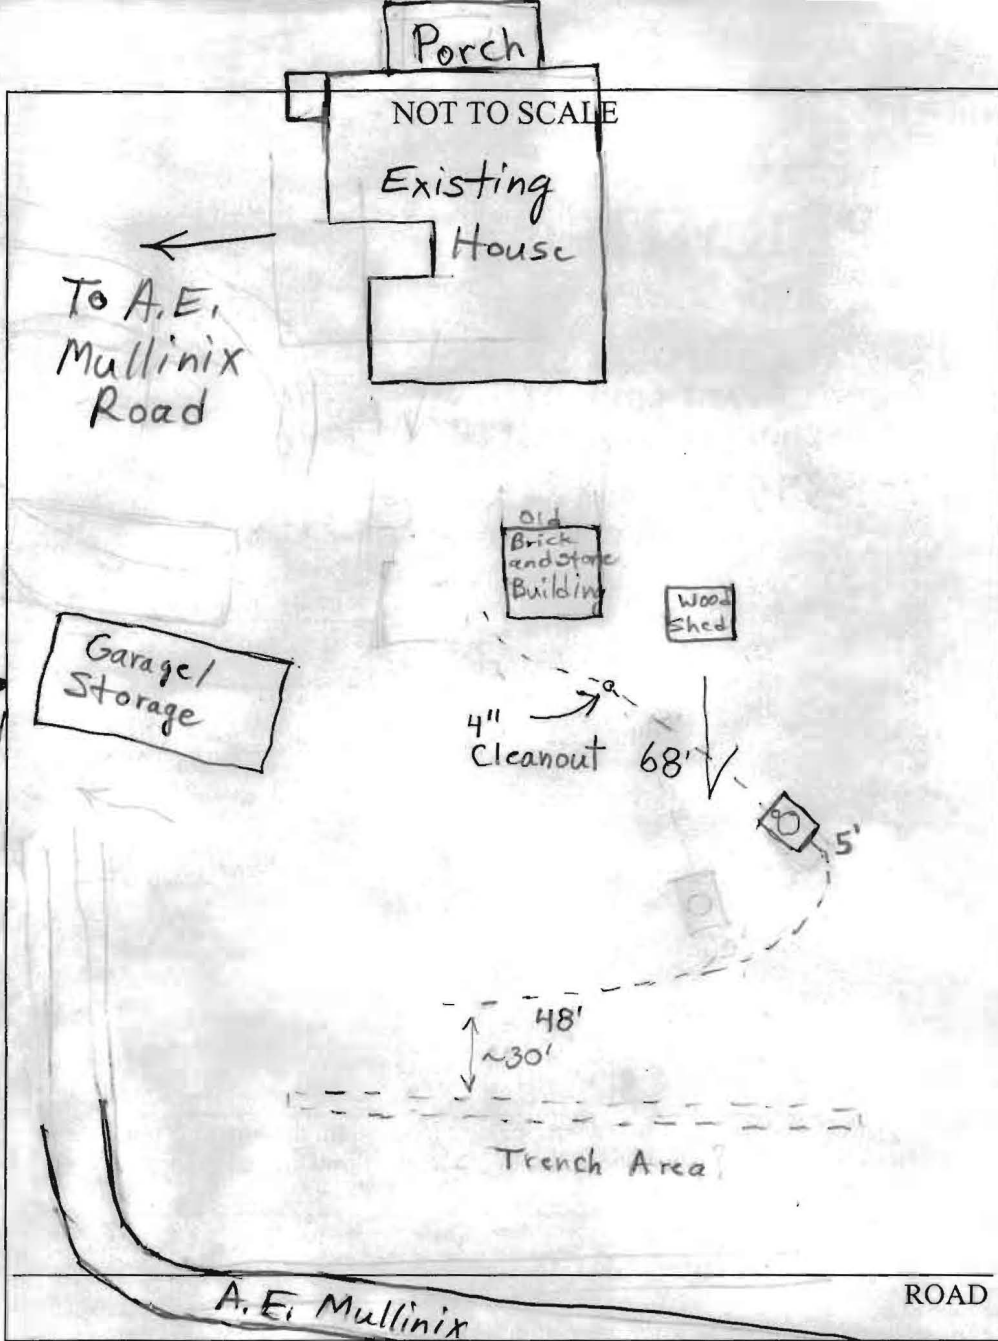 Porch
NOT TO SCALE
Existing
House
To A.E.
Mullinix
Road
Old
Brick
and Stone
Building
Wood
Shed
Garage/
Storage
4"
Cleanout
68'
5'
48'
~30'
Trench Area
ROAD
A.E. Mullinix